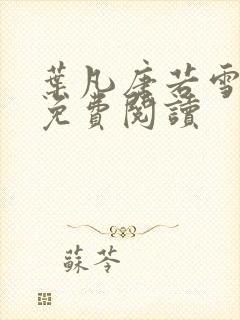 葉凡唐若雪
免費閱讀
蘇苓